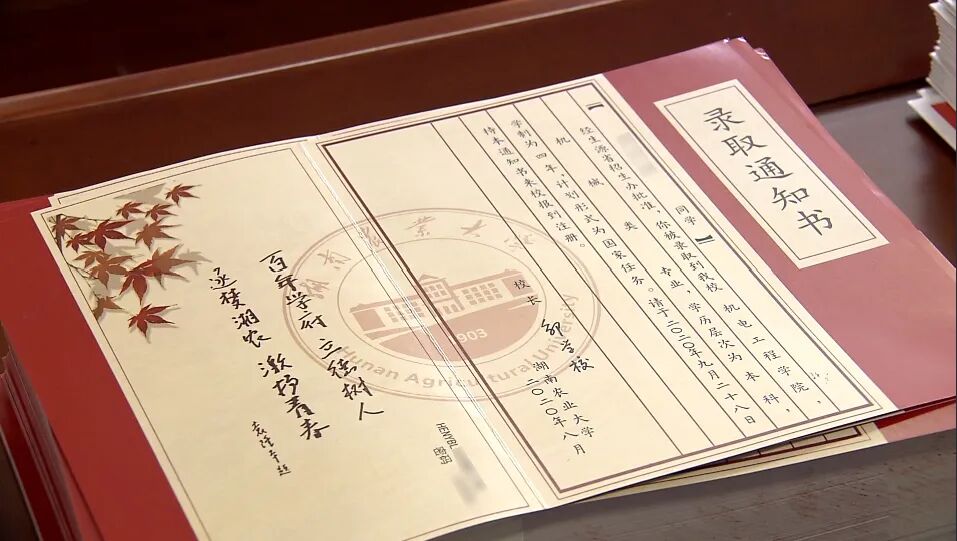 录取通知书
【 同学】
经生源省招生办批准，你被录取到我校 机电工程学院，
机械类 专业，学历层次为 本科，
学制为四年，计划形式为国家任务。请于二〇二〇年九月二十八日
持本通知书来校报到注册。
校长 邹学校
湖南农业大学
二〇二〇年八月
Hunan Agricultural University
1903
百年学府 立德树人
逐梦湘农 激扬青春
袁隆平题